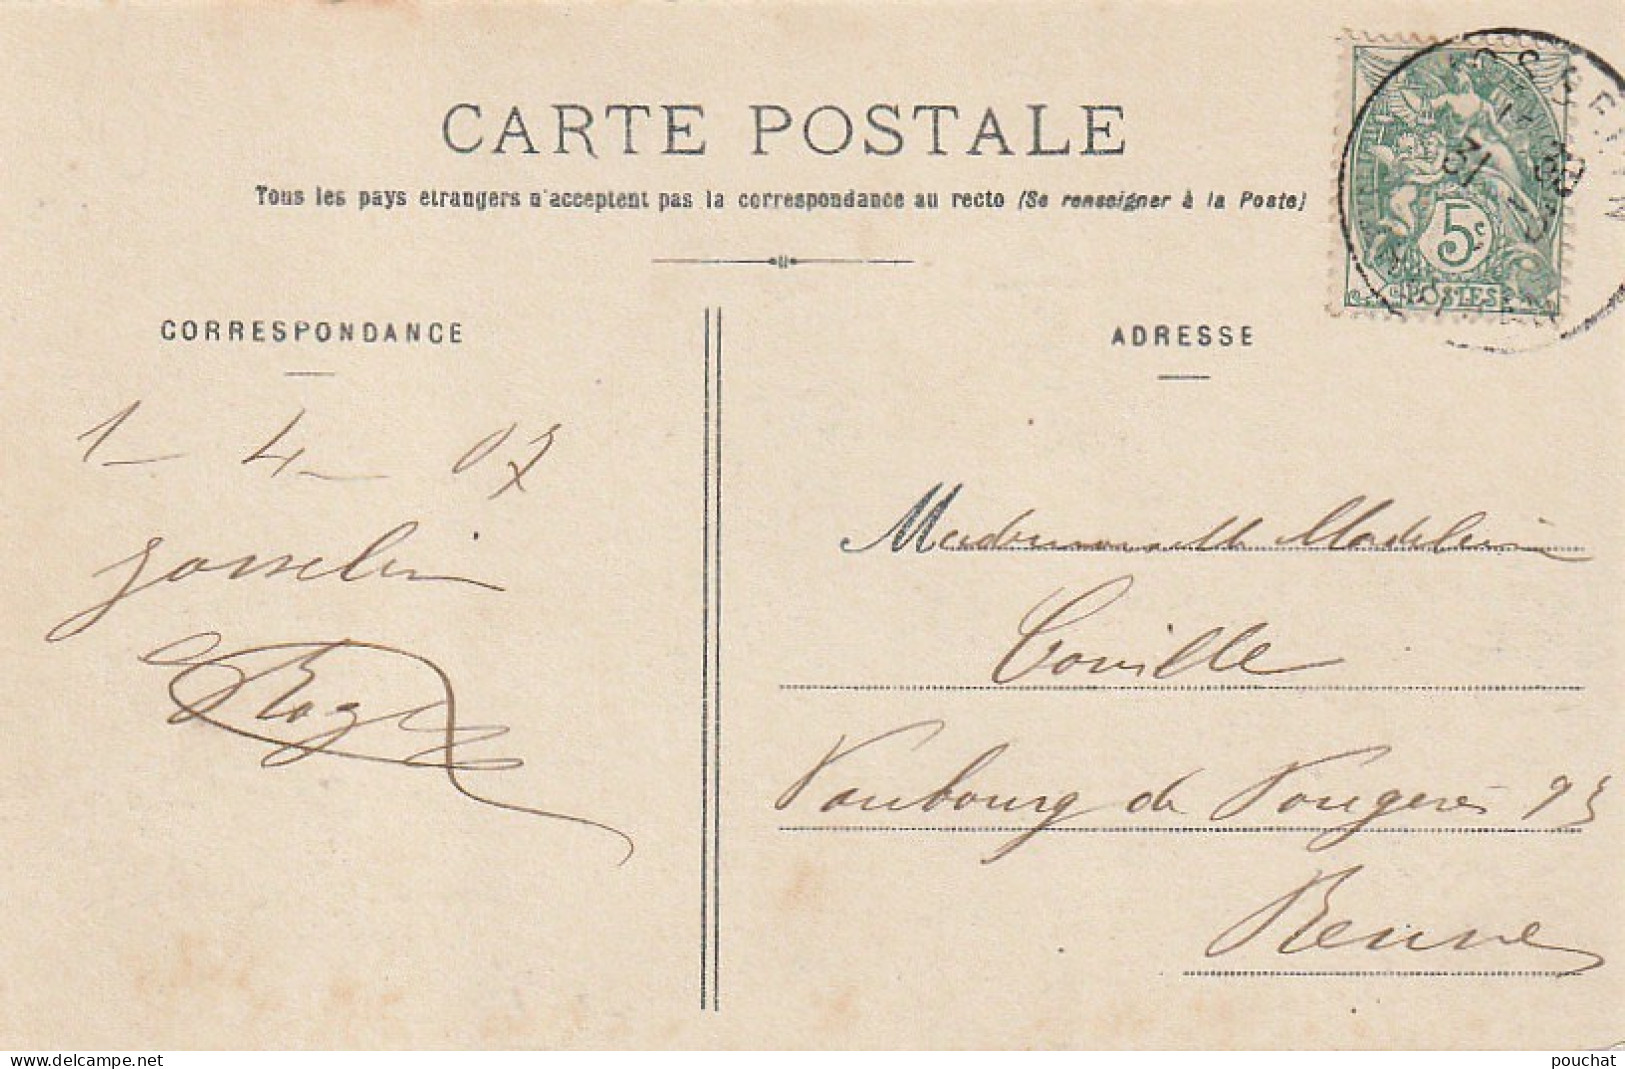 CARTE POSTALE
Tous les pays etrangers n'acceptent pas la correspondance au recto (Se renseigner à la Poste)
CORRESPONDANCE
ADRESSE
5c
POSTES
31
1 - 4 - 07
Josselin
Mademoiselle Madeleine
Coville
Faubourg de Fougères 93
Rennes
www.delcampe.net
pouchat